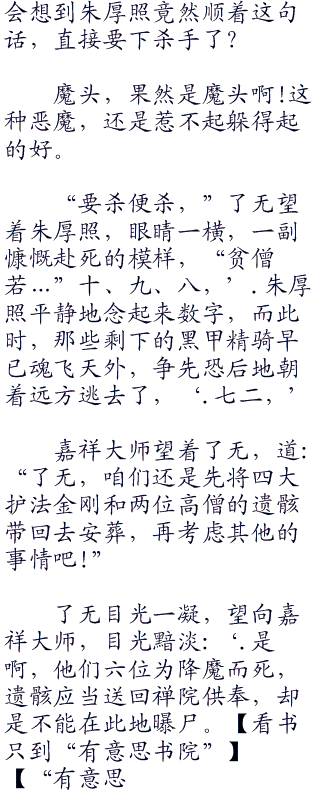 会想到朱厚照竟然顺着这句
话，直接要下杀手了？
魔头，果然是魔头啊!这
种恶魔，还是惹不起躲得起
的好。
“要杀便杀，”了无望
着朱厚照，眼睛一横，一副
慷慨赴死的模样，“贫僧
若…”十、九、八，’.朱厚
照平静地念起来数字，而此
时，那些剩下的黑甲精骑早
已魂飞天外，争先恐后地朝
着远方逃去了，‘.七二，’
嘉祥大师望着了无，道:
“了无，咱们还是先将四大
护法金刚和两位高僧的遗骸
带回去安葬，再考虑其他的
事情吧!”
了无目光一凝，望向嘉
祥大师，目光黯淡:‘.是
啊，他们六位为降魔而死，
遗骸应当送回禅院供奉，却
是不能在此地曝尸。【看书
只到“有意思书院”】
【“有意思